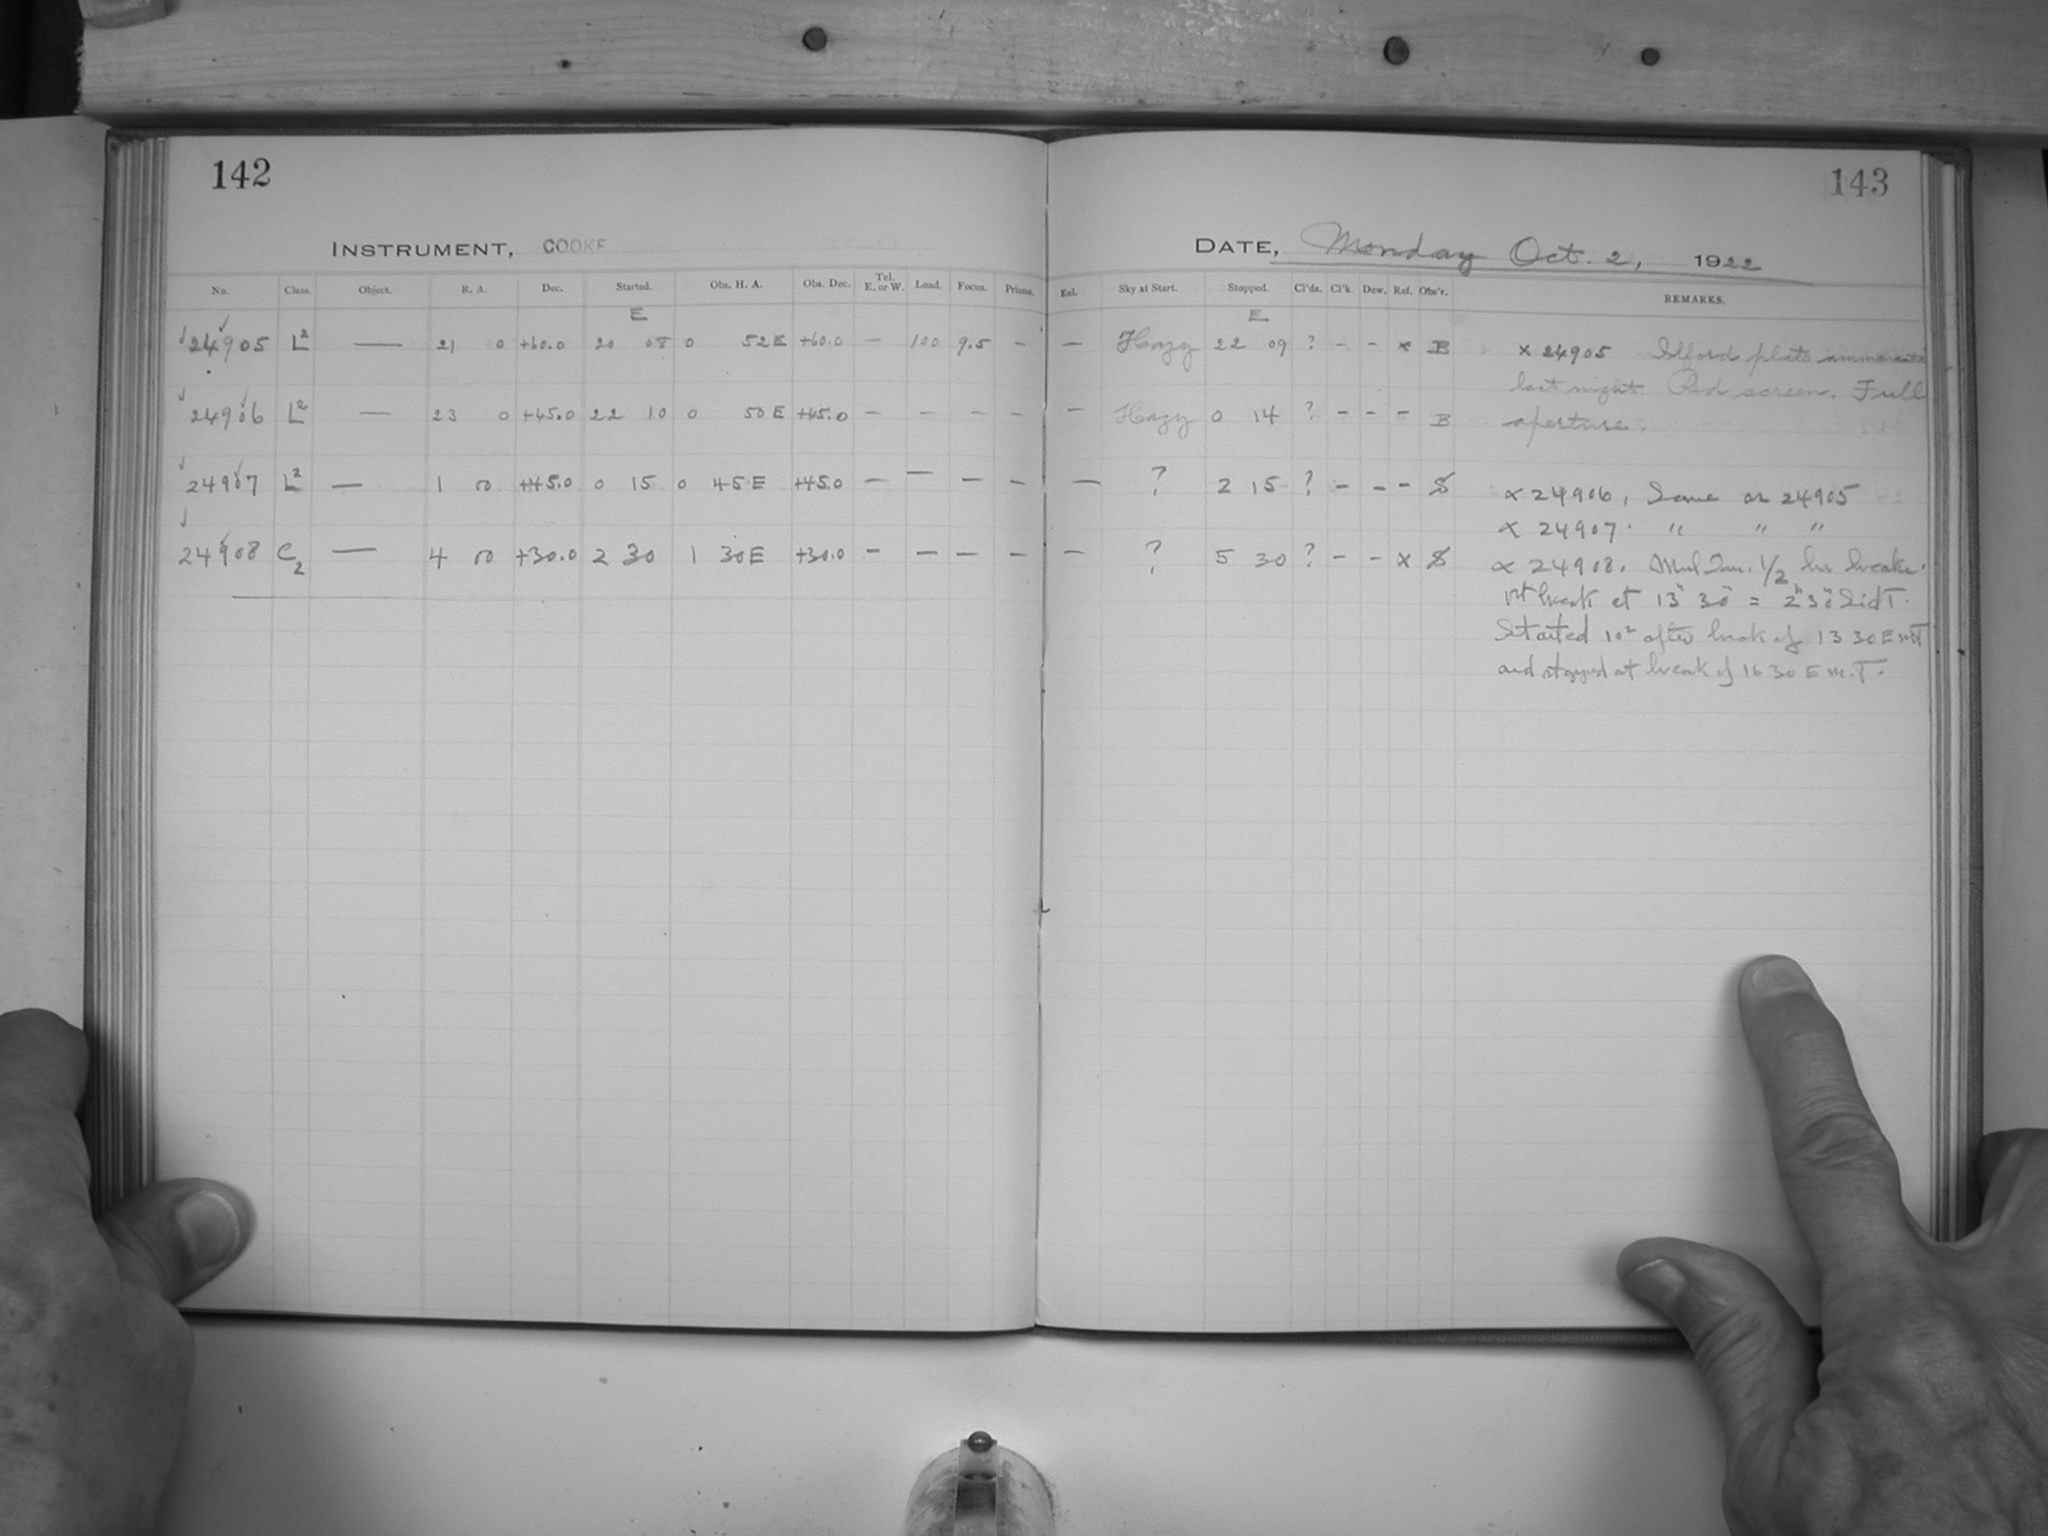 142
143
INSTRUMENT, COOKE
DATE, Monday Oct. 2, 1922
No. Class. Object. R. A. Dec. Started. Obs. H. A. Obs. Dec. Tel. E. or W. Load. Focus. Prisms. Enl. Sky at Start. Stopped. Cl'ds. Cl'k. Dew. Ref. Obs'r. REMARKS.
E E
24905 L2 — 21 0 +60.0 20 08 0 52E +60.0 — 100 9.5 — — Hazy 22 09 ? - - x B
24906 L2 — 23 0 +45.0 22 10 0 50E +45.0 — — — — — Hazy 0 14 ? - - - B
24907 L2 — 1 00 +45.0 0 15 0 45E +45.0 — — — — — ? 2 15 ? - - - S
24908 C2 — 4 00 +30.0 2 30 1 30E +30.0 — — — — — ? 5 30 ? - - x S
x 24905 Ilford plate
last night. Red screen. Full
aperture.
x 24906, Same as 24905
x 24907. " " "
x 24908. 1/2 hr breaks.
1st break at 13h 30m = 2h 30m Sid T.
Started 10s after break of 13 30 E m T
and stopped at break of 16 30 E m.T.